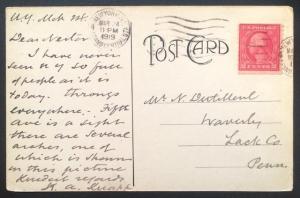 N.Y. Mch 24.
Dear Nestor
I have never
seen N Y so full
of people as it is
today. throngs
everywhere; - Fifth
Ave is a sight
there are several
arches, one of
which is shown
in this picture
Kindest regards
A. Knapp
NEW YORK, N.Y.
MAR 24
11 PM
1919
POST CARD
2 CENTS 2
Mr N.
Waverly
Lack Co.
Penn.